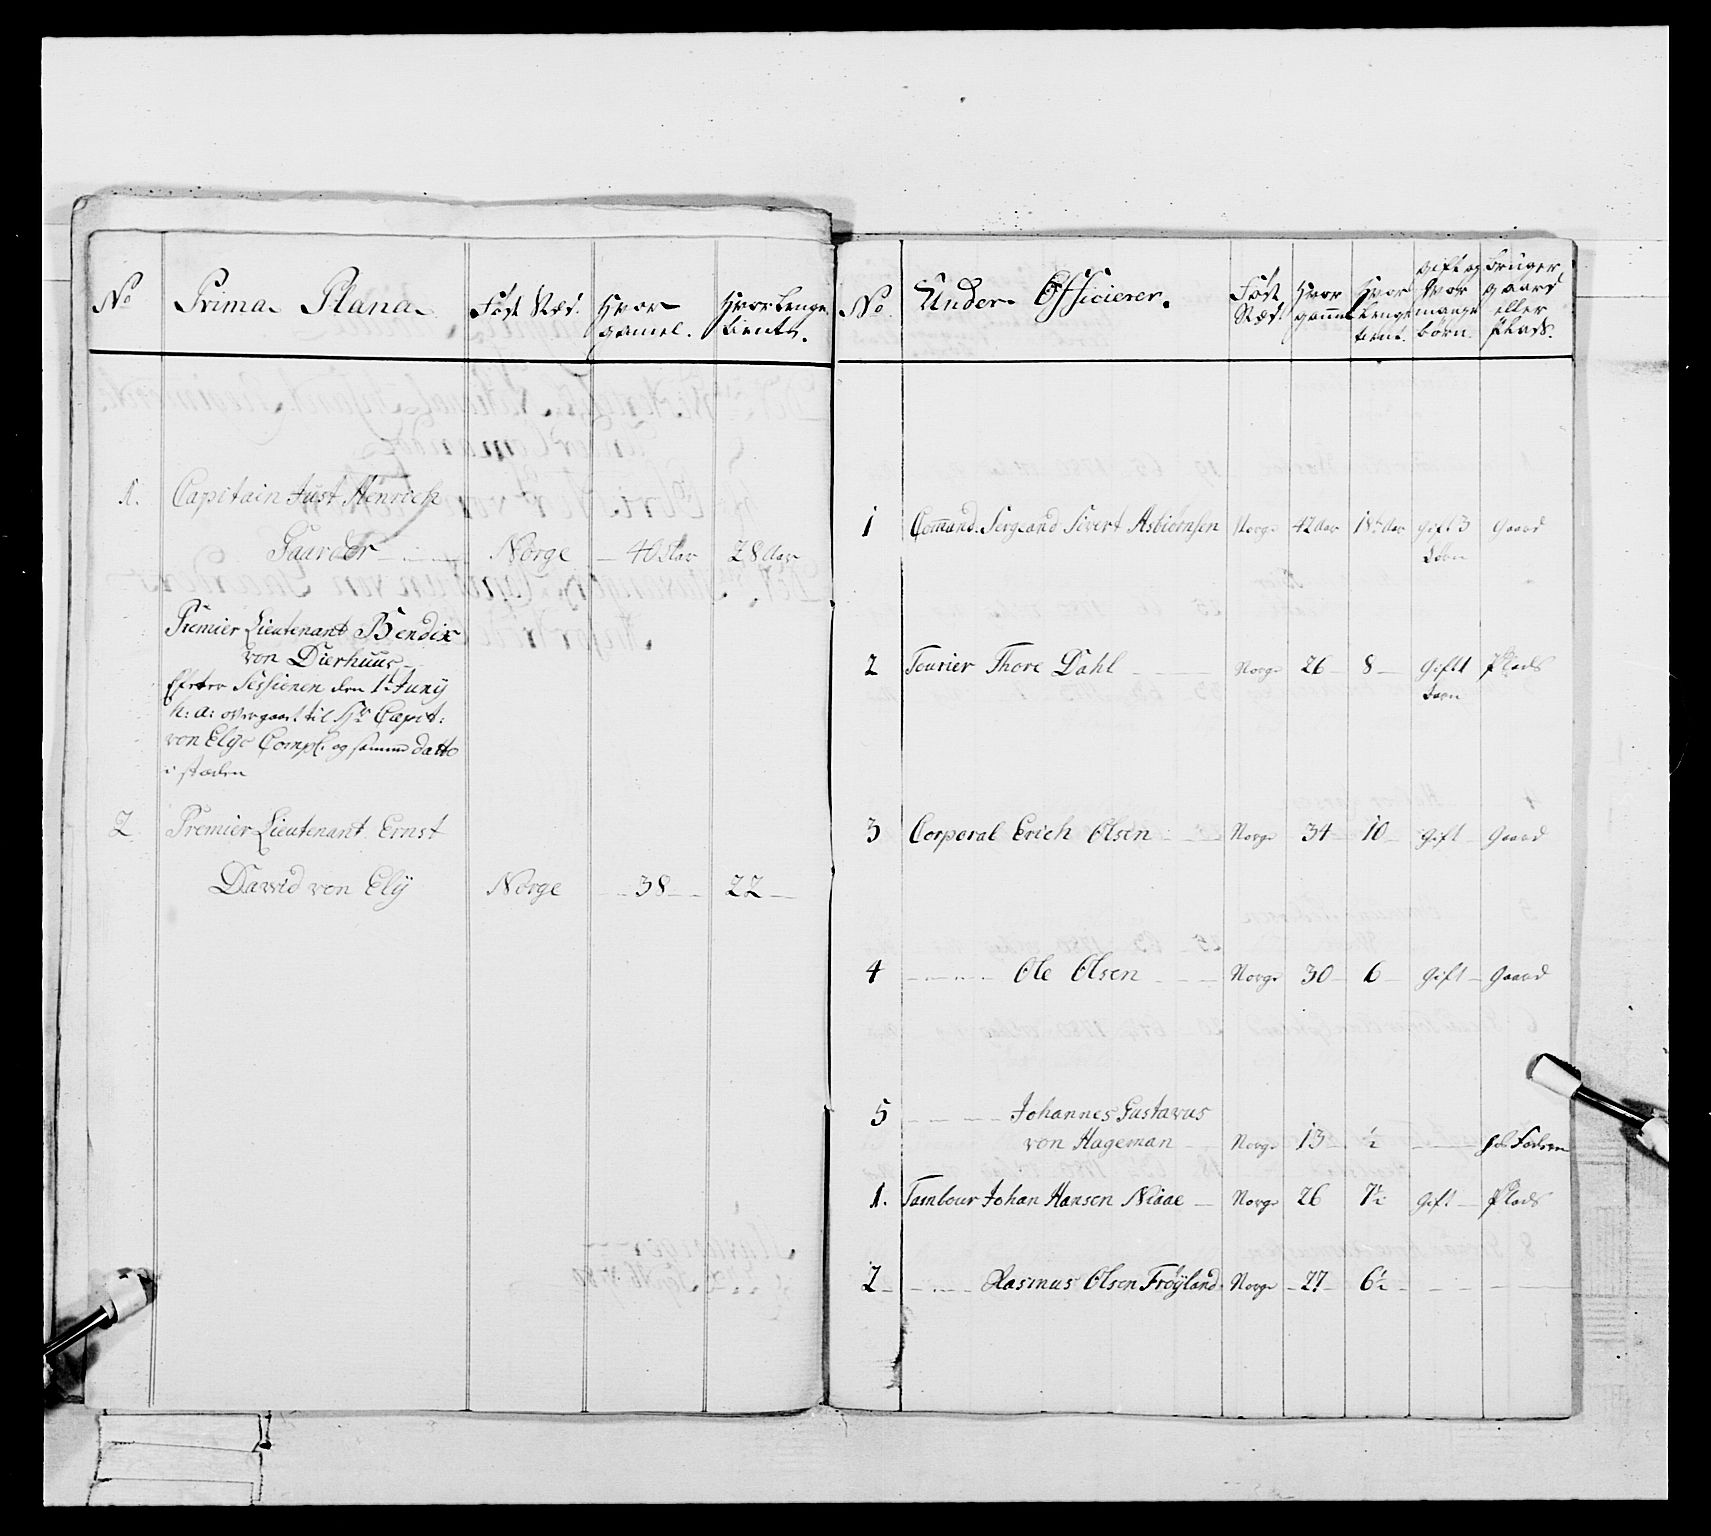 No
Prima Plana
Født Sted.
Hvor
gamel.
Hvor Lenge
tient.
1. Capitain Just Henrich
Gaarder Norge 40 Aar 28 Aar
Premier Lieutenant Bendix
von Dierhuus
Efter Sessionen den 1te Juny
h: a: overgaaet til Capit:
von Elys Comp: og samme datto
i stæden
2 Premier Lieutenant Ernst
David von Elÿ Norge 38 22
No.
Under Officierer.
Født
Sted.
Hvor
gamel
Hvor
Lenge
tient.
Gift og
Hvor
mange
børn.
Bruger
gaard
eller
Plads.
1 Command. Sergeand Sivert Asbiørnsen Norge 42 Aar 18 Aar Gift 3 Gaard
børn
2 Fourier Thore Dahl Norge 26 8 Gift 1 Plads
barn
3 Corporal Erich Olsen Norge 34 10 Gift Gaard
4 Ole Olsen Norge 30 6 Gift Gaard
5 Johannes Gustavus
von Hageman Norge 13 ½ Faderen
1. Tambour Johan Hansen Niaae Norge 26 7½ Gift Plads
2 Rasmus Olsen Frøÿland Norge 27 6½